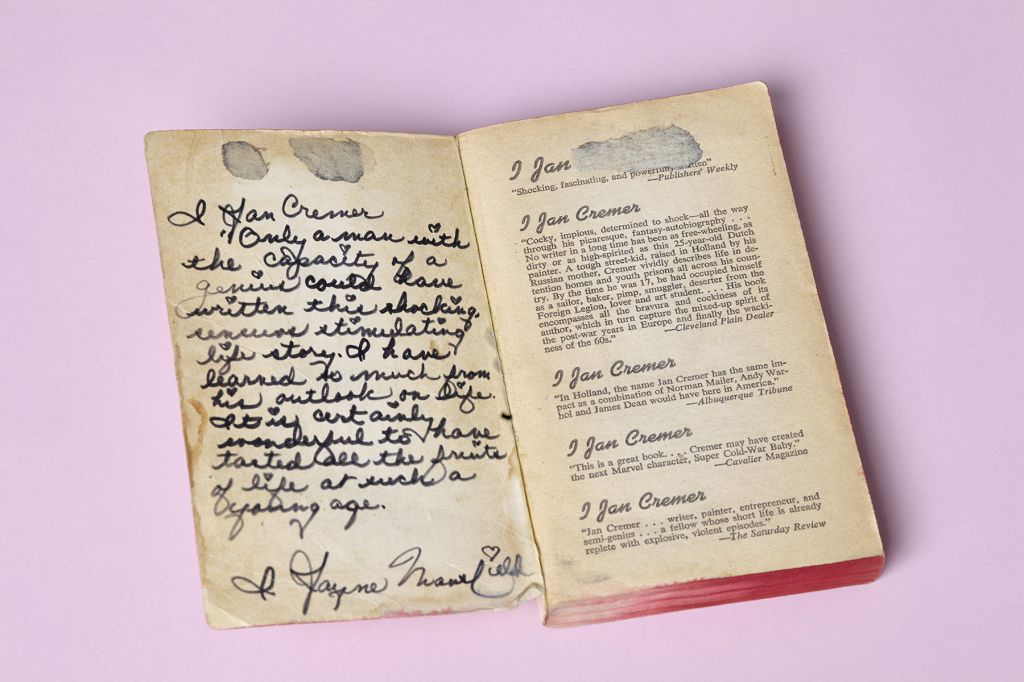 I Jan Cremer
"Only a man with
the capacity of a
genius could have
written this shocking,
sensuous stimulating
life story. I have
learned so much from
his outlook on life.
It is certainly
wonderful to have
tasted all the fruits
of life at such a
young age.
I Jayne Mansfield
I Jan
"Shocking, fascinating, and powerfully
—Publishers' Weekly
I Jan Cremer
"Cocky, impious, determined to shock—all the way
through his picaresque, fantasy-autobiography . . .
No writer in a long time has been as free-wheeling, as
dirty or as high-spirited as this 25-year-old Dutch
painter. A tough street-kid, raised in Holland by his
Russian mother, Cremer vividly describes life in de-
tention homes and youth prisons all across his coun-
try. By the time he was 17, he had occupied himself
as a sailor, baker, pimp, smuggler, deserter from the
Foreign Legion, lover and art student. . . . His book
encompasses all the bravura and cockiness of its
author, which in turn capture the mixed-up spirit of
the post-war years in Europe and finally the wacki-
ness of the 60s."
—Cleveland Plain Dealer
I Jan Cremer
"In Holland, the name Jan Cremer has the same im-
pact as a combination of Norman Mailer, Andy War-
hol and James Dean would have here in America."
—Albuquerque Tribune
I Jan Cremer
"This is a great book. . . . Cremer may have created
the next Marvel character, Super Cold-War Baby."
—Cavalier Magazine
I Jan Cremer
"Jan Cremer . . . writer, painter, entrepreneur, and
semi-genius . . . a fellow whose short life is already
replete with explosive, violent episodes."
—The Saturday Review